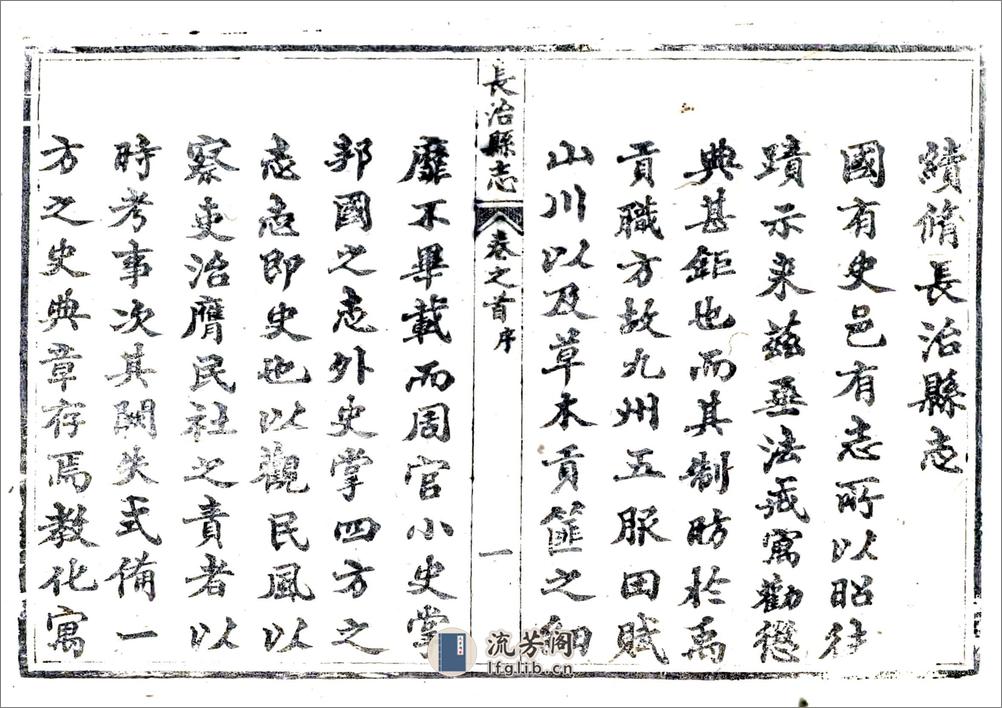 續脩長治縣志
國有史邑有志所以昭往
蹟示来茲垂法戒寓勸懲
典甚鉅也而其制昉於禹
貢職方故九州五服田賦
山川以及草木貢篚之細
長治縣志
卷之首
序
一
靡不畢載而周官小史掌
邦國之志外史掌四方之
志志即史也以觀民風以
察吏治膺民社之責者以
時考事次其闕失式備一
方之史典章存焉教化寓
流芳阁
lfglib.cn